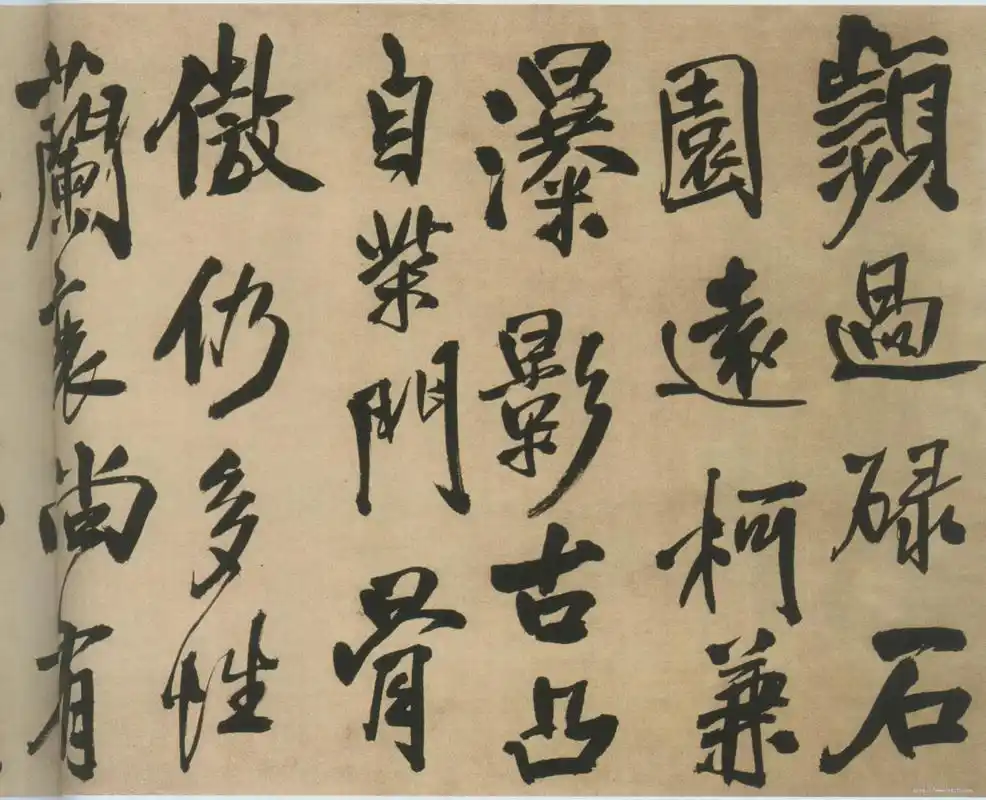 過碌石
園遠柯兼
瀑影古凸
自柴門骨
傲仍多性
蘭衰尚有